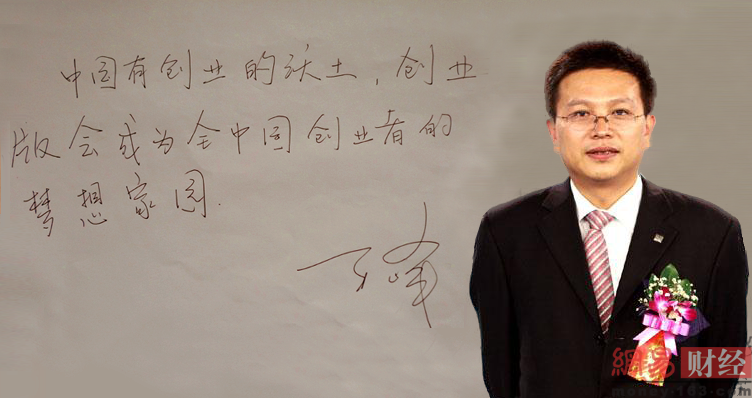 中国有创业的沃土，创业
版会成为全中国创业者的
梦想家园.
網易财经
money.163.com